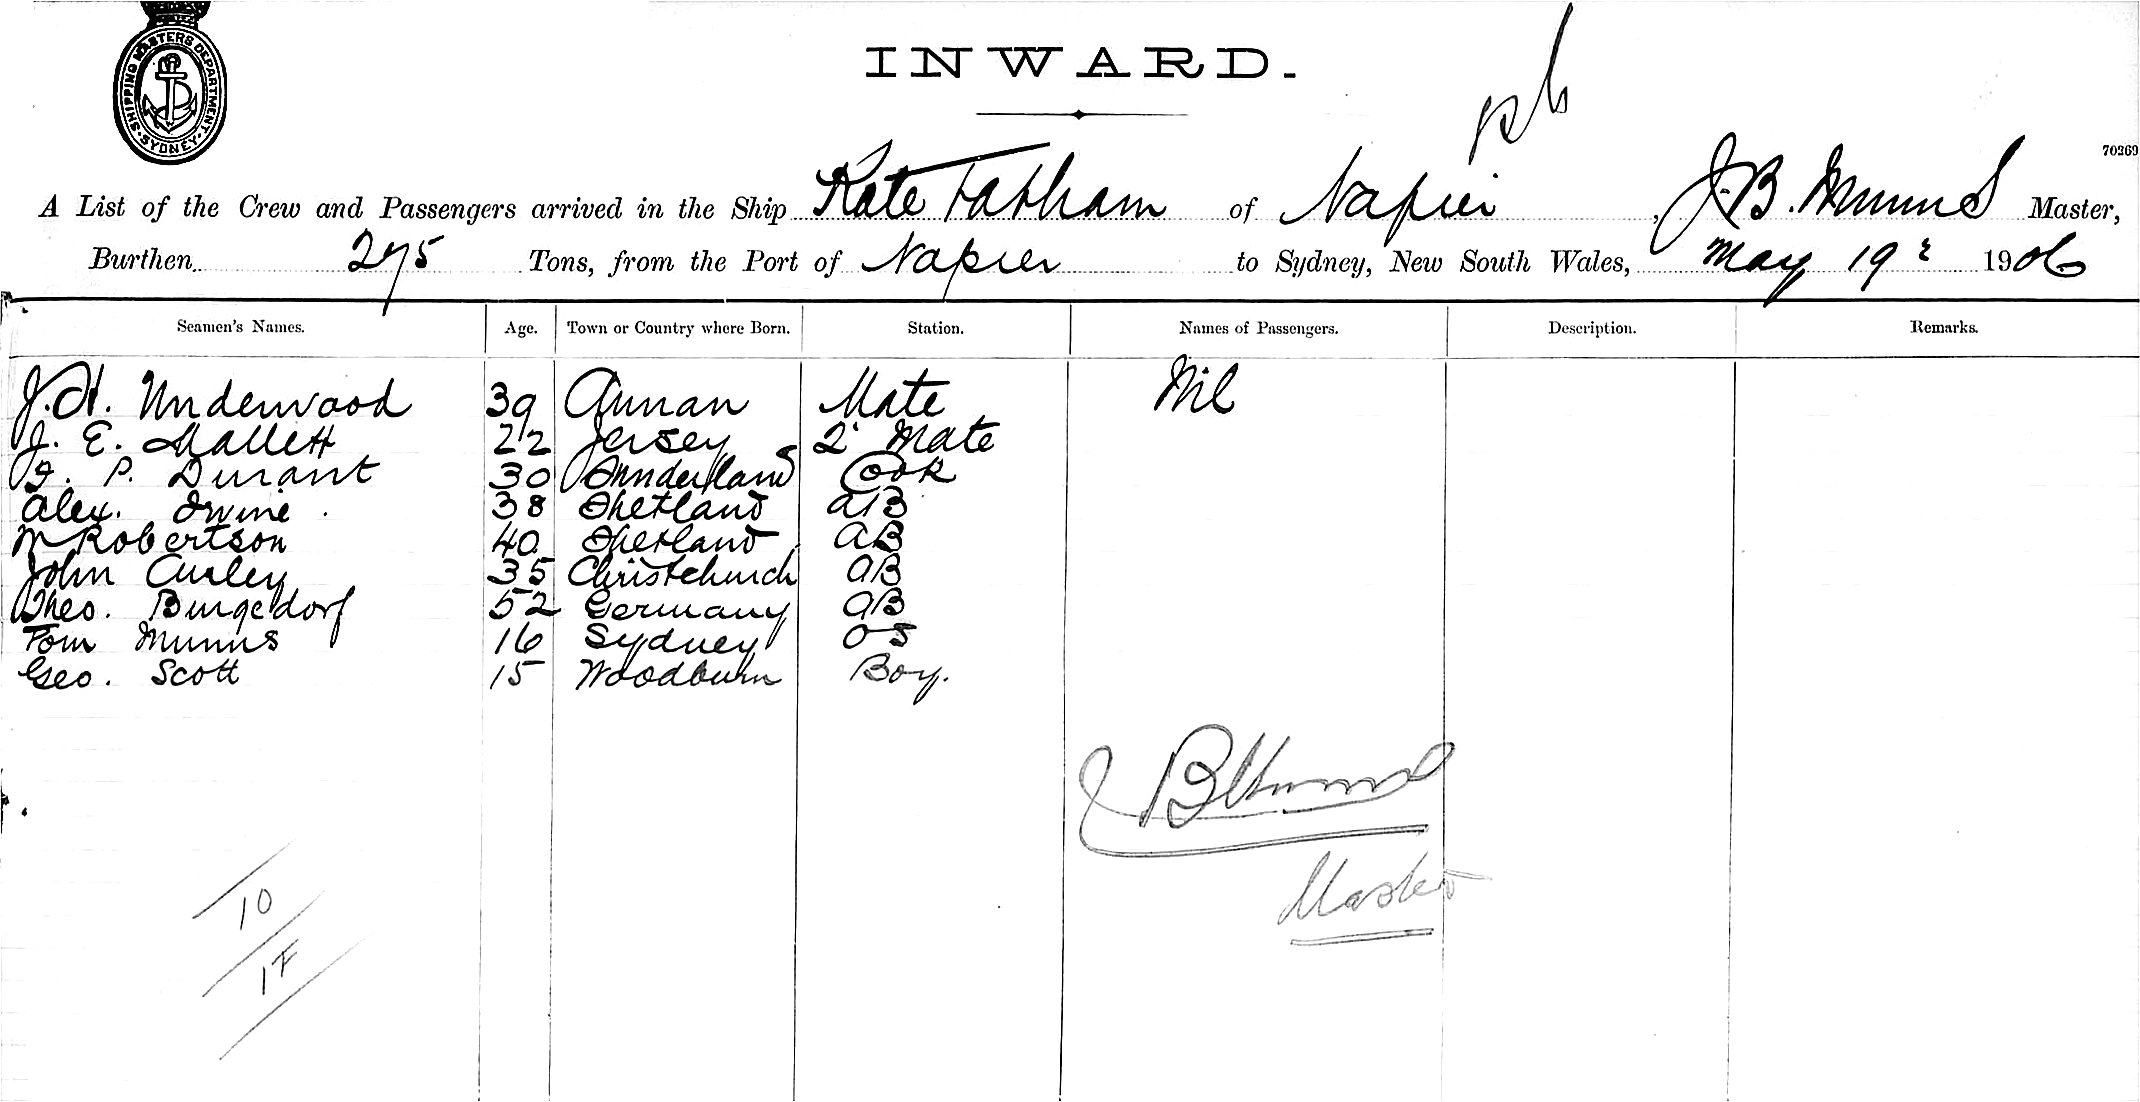 SHIPPING MASTERS DEPARTMENT
SYDNEY
INWARD.
70269
A List of the Crew and Passengers arrived in the Ship Kate Tatham of Napier, J. B. Munn Master,
Burthen 275 Tons, from the Port of Napier to Sydney, New South Wales, May 19 1906
Seamen's Names. Age. Town or Country where Born. Station. Names of Passengers. Description. Remarks.
J. H. Underwood 39 Annan Mate Nil
J. E. Mallett 22 Jersey 2 Mate
P. Durant 30 Sunderland Cook
Alex. Irvine 38 Shetland AB
Robertson 40 Shetland AB
John Curley 35 Christchurch AB
Theo. Burgedorf 52 Germany AB
Tom Munns 16 Sydney OS
Geo. Scott 15 Woodburn Boy.
Master
10
1F